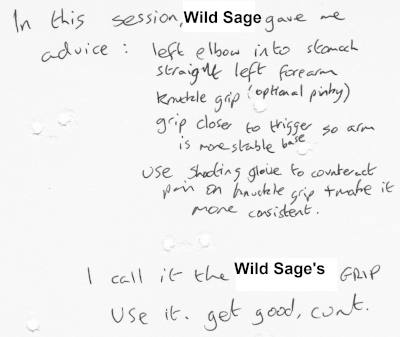 In this session, Wild Sage gave me
advice : left elbow into stomach
straight left forearm
knuckle grip (optional pinky)
grip closer to trigger so arm
is more stable base
use shooting glove to counteract
pain on knuckle grip + make it
more consistent.
I call it the Wild Sage's GRIP
USE it. get good, cunt.